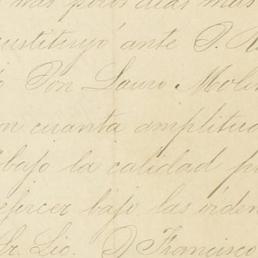 mas pocos dias mas
sustituyó ante D. R
Don Lauro Molin
on cuanta amplitud
bajo la calidad p
ejercer bajo las órden
Sr. Lic. D Francisco